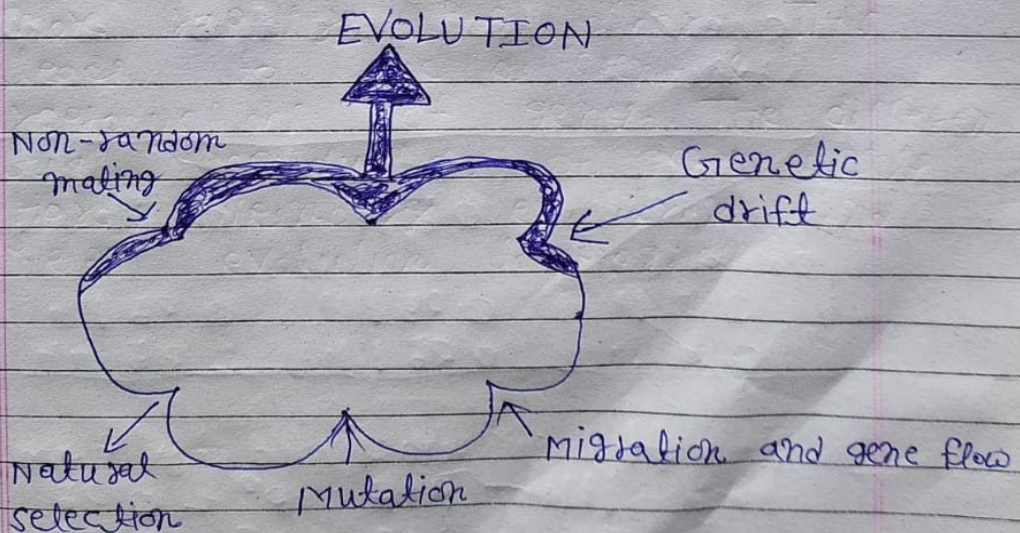 EVOLUTION
Non-random
mating
Genetic
drift
Natural
selection
Mutation
Migration and gene flow